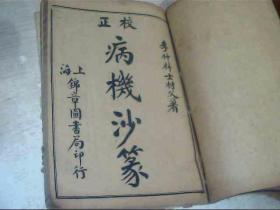 校正
李士材父著
病機沙篆
上海
錦章圖書局印行